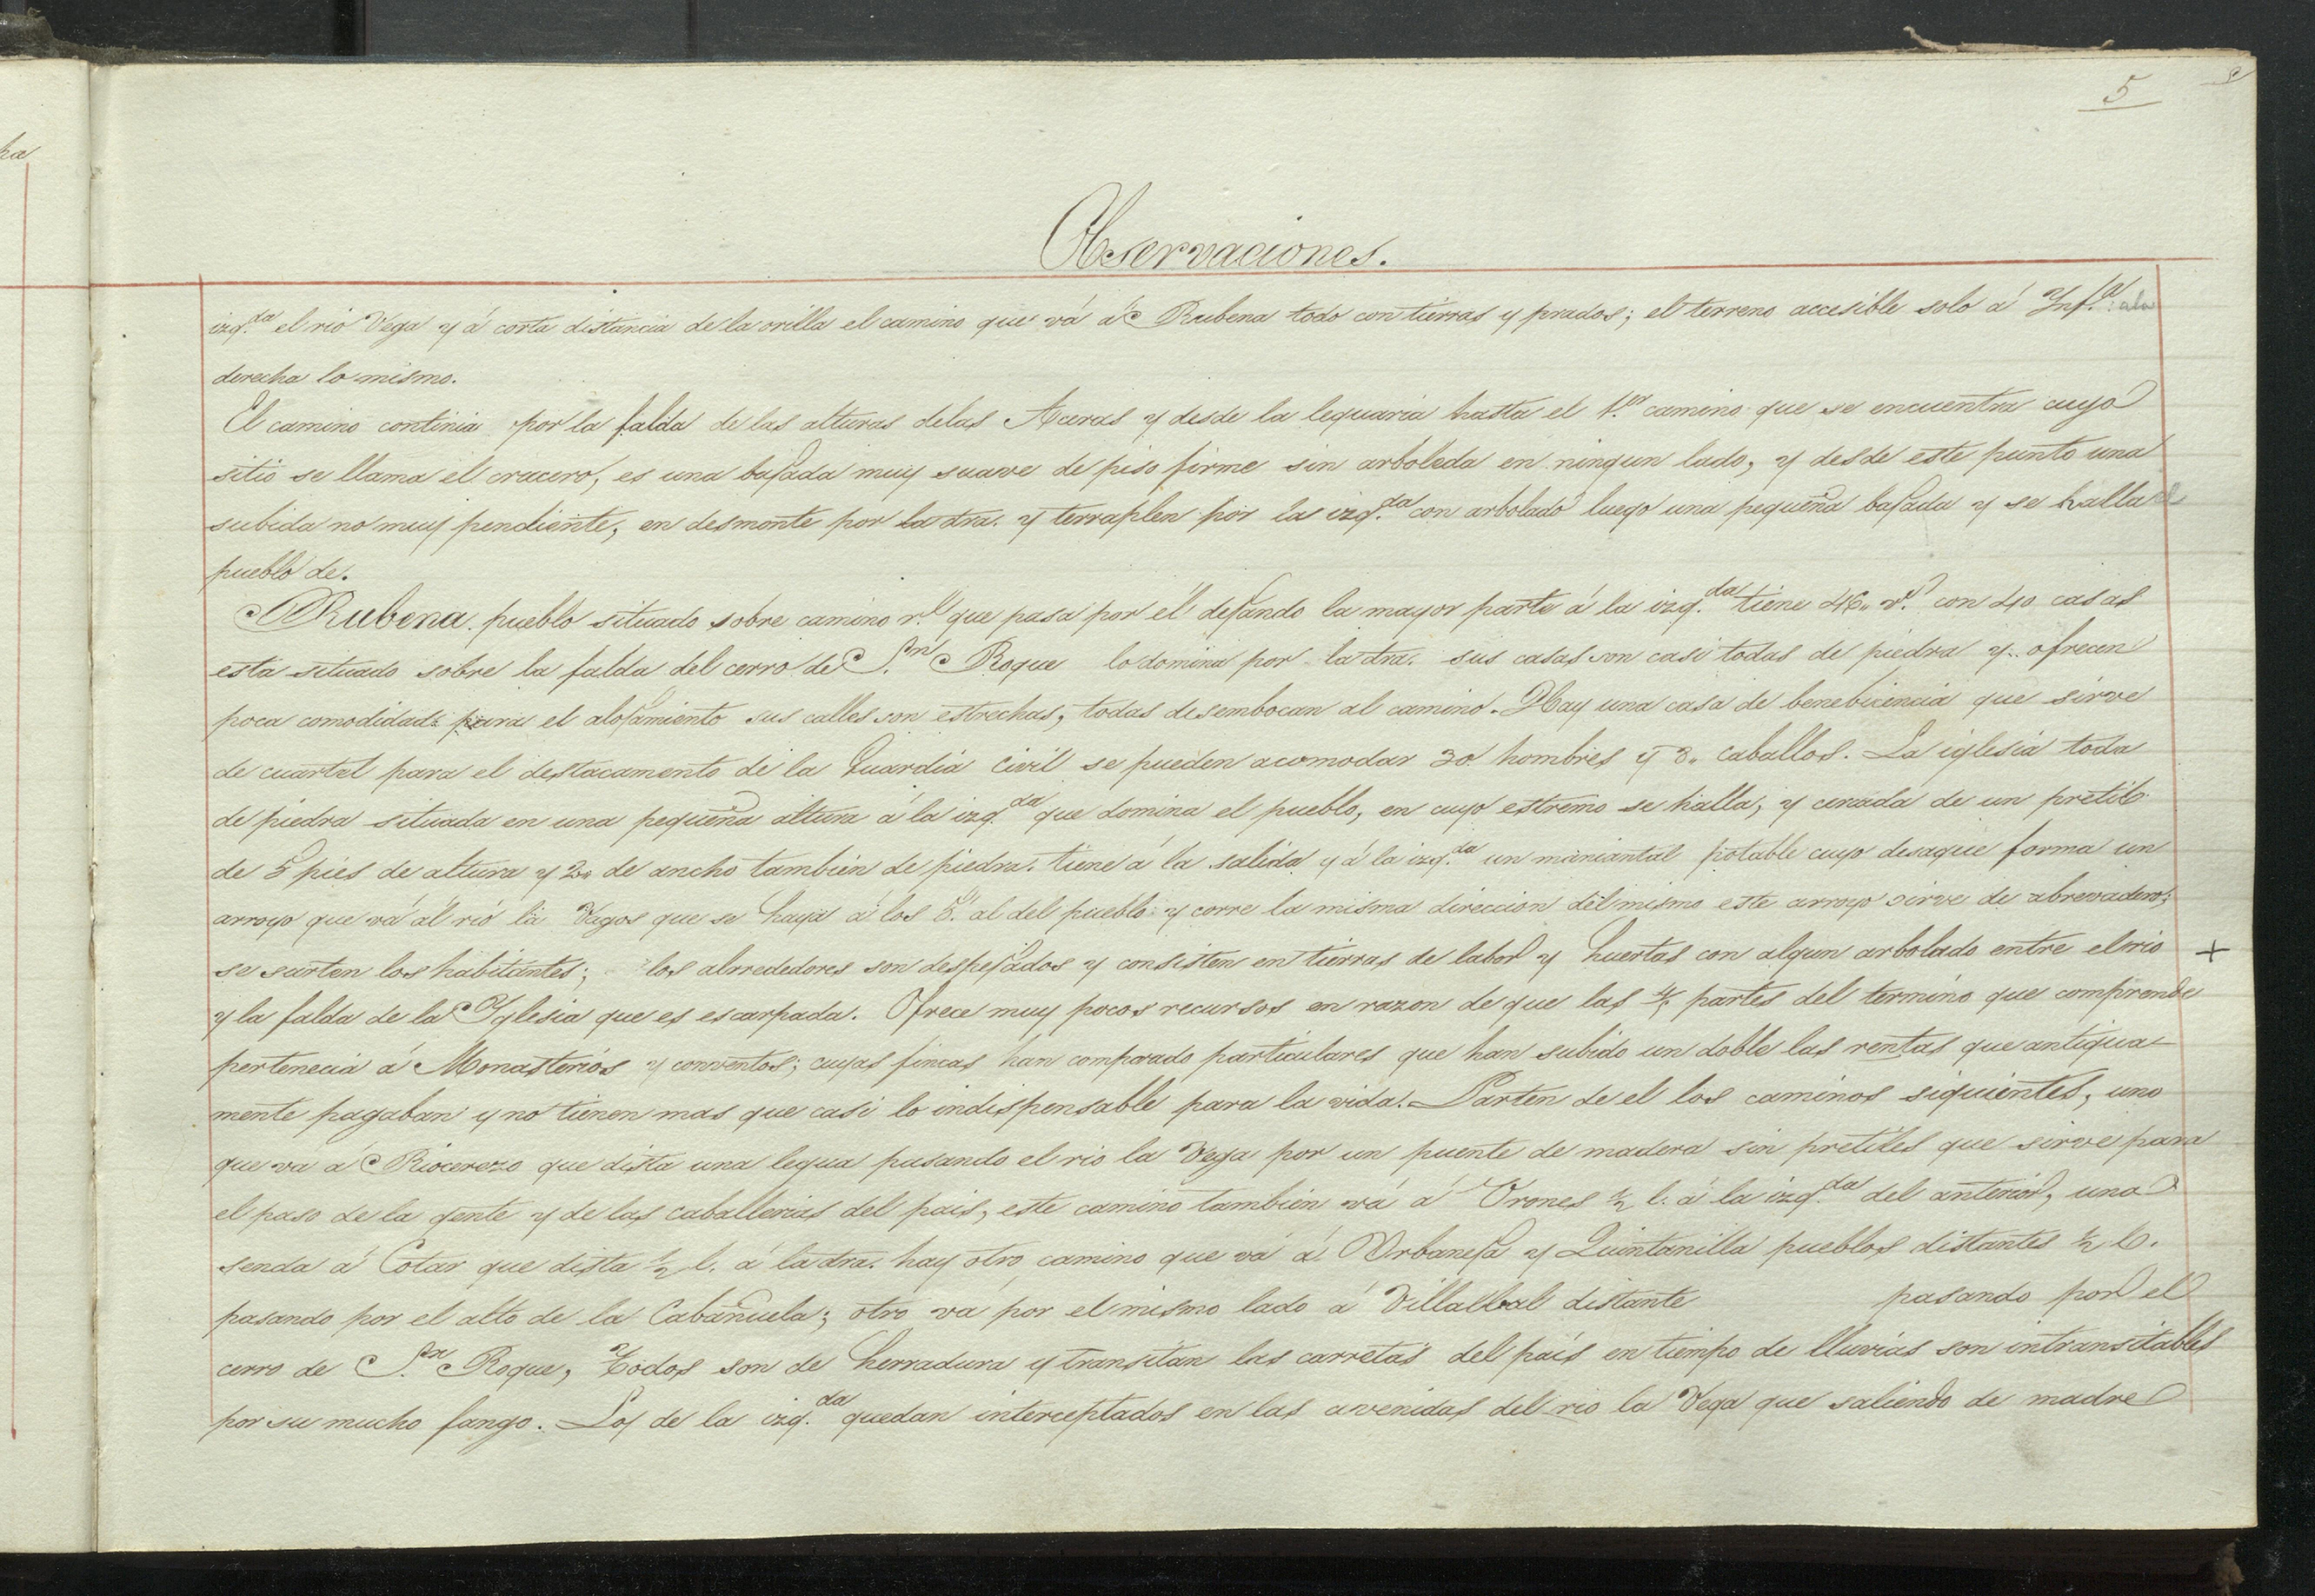 5
Observaciones.
izq.da el rio Vega y á corta distancia de la orilla el camino que vá á Rubena todo con tierras y prados; el terreno accesible solo á Ynf.a: ala
derecha lo mismo.
El camino continia por la falda de las alturas delas Aceras y desde la leguaria hasta el 1.er camino que se encuentra cuyo
sitio se llama el crucero, es una bajada muy suave de piso firme sin arboleda en ningun lado, y desde este punto una
subida no muy pendiente, en desmonte por la dra. y terraplen por la izq.da con arbolado luego una pequeña bajada y se halla el
pueblo de.
Rubena. pueblo situado sobre camino r.l que pasa por él dejando la mayor parte á la izq.da tiene 46. v.s con 40 casas
está situado sobre la falda del cerro de S.n Roque lo domina por la dra. sus casas son casi todas de piedra y ofrecen
poca comodidad para el alojamiento sus calles son estrechas, todas desembocan al camino. Hay una casa de benebicencia que sirve
de cuartel para el destacamento de la Guardia Civil se pueden acomodar 30 hombres y 8. caballos. La iglesia toda
de piedra situada en una pequeña altura á la izq.da que domina el pueblo, en cuyo estremo se halla, y cercada de un pretil
de 5 pies de altura y 2. de ancho tambien de piedra. tiene á la salida y á la izq.da un maniantal potable cuyo desagüe forma un
arroyo que vá al rió la Vagos que se haya á los al del pueblo y corre la misma direccion del mismo este arroyo sirve de abrevadero;
se surten los habitantes; los alrrededores son despejados y consisten en tierras de labor y huertas con algun arbolado entre el rio +
y la falda de la Yglesia que es escarpada. Ofrece muy pocos recursos en razon de que las 4/5 partes del termino que comprende
pertenecia á Monasterios y conventos; cuyas fincas han comprado particulares que han subido un doble las rentas que antigua-
mente pagaban y no tienen mas que casi lo indispensable para la vida. Parten de el los caminos siguientes, uno
que va á Riocerezo que dista una legua pasando el rio la Vega por un puente de madera sin pretiles que sirve para
el paso de la gente y de las caballerias del pais, este camino tambien vá á Orones 1/2 l. á la izq.da del anterior, una
senda á Cotar que dista 1/2 l. á la dra. hay otro camino que vá á Urbaneja y Quintanilla pueblos distantes 1/2 l.
pasando por el alto de la Cabañuela; otro vá por el mismo lado á Villalbal distante pasando por el
cerro de S.n Roque, Todos son de herradura y transitan las carretas del país en tiempo de lluvias son intransitables
por su mucho fango. Los de la izq.da quedan interceptados en las avenidas del rio la Vega que saliendo de madre